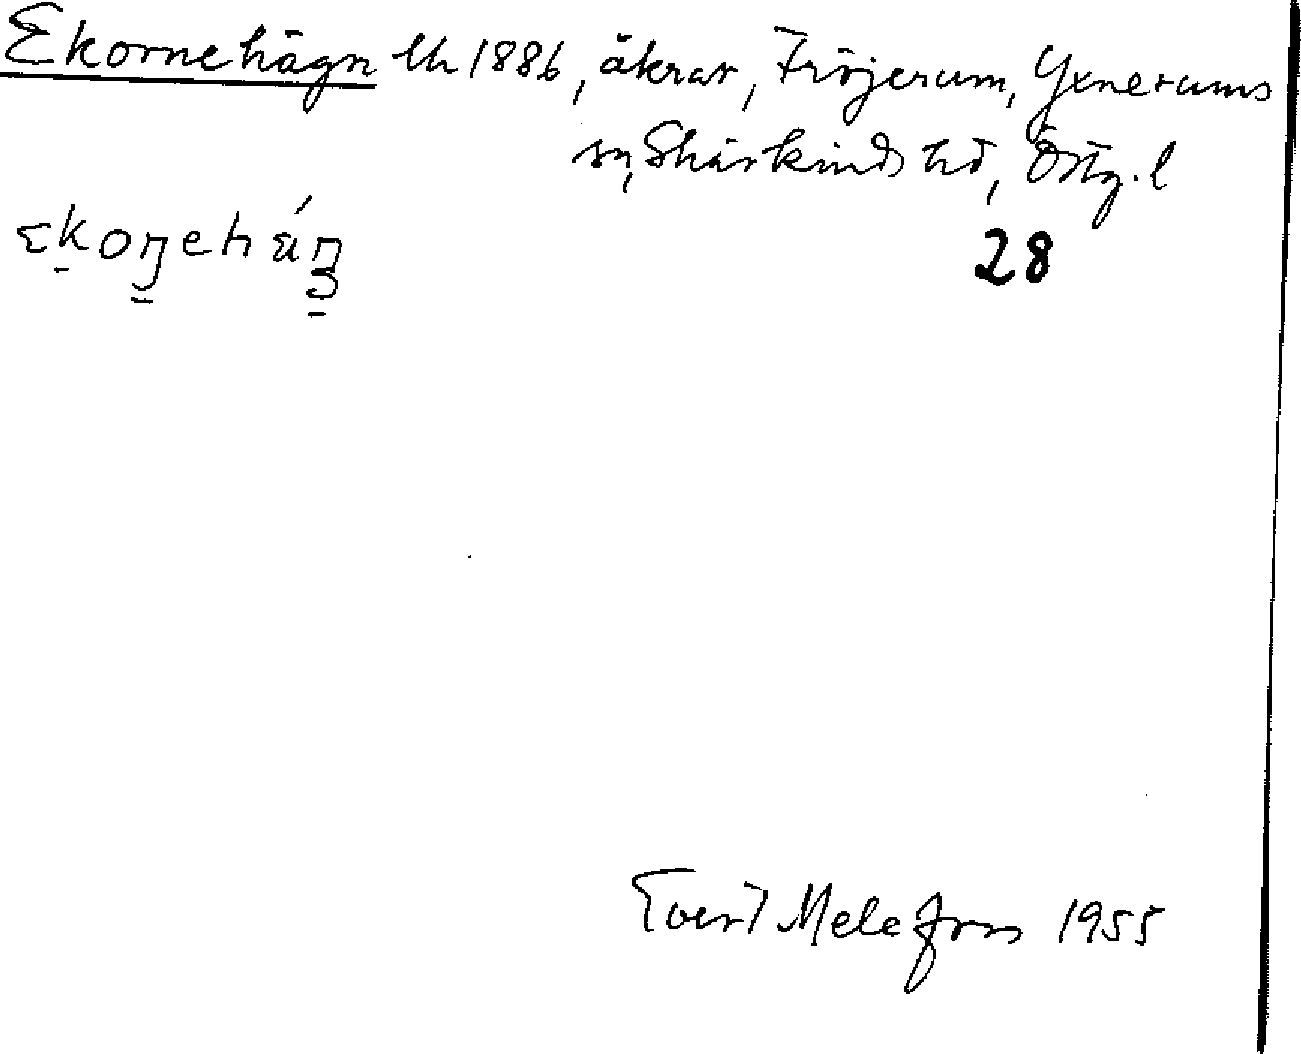 Ekornehägn lh 1886, åkrar, Fröjerum, Yxnerums
sn, Skärkinds hd, Östg. l
28
Evert Melefors 1955